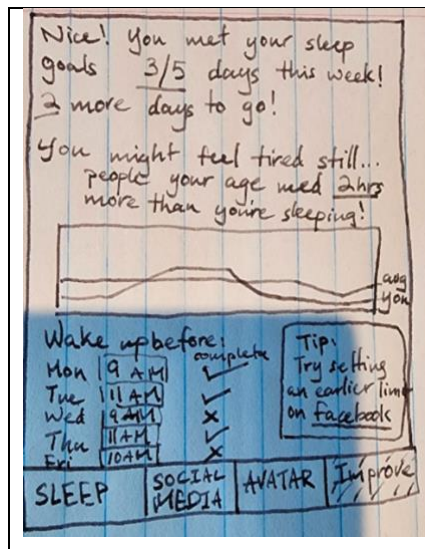 Nice! You met your sleep
goals 3/5 days this week!
2 more days to go!
You might feel tired still...
people your age need 2hrs
more than you're sleeping!
avg
you
Wake up before:
complete
Mon 9 AM ✓
Tue 11 AM ✓
Wed 9 AM ✗
Thu 11 AM ✓
Fri 10 AM ✗
Tip:
Try setting
an earlier limit
on Facebook
SLEEP
SOCIAL
MEDIA
AVATAR
Improve